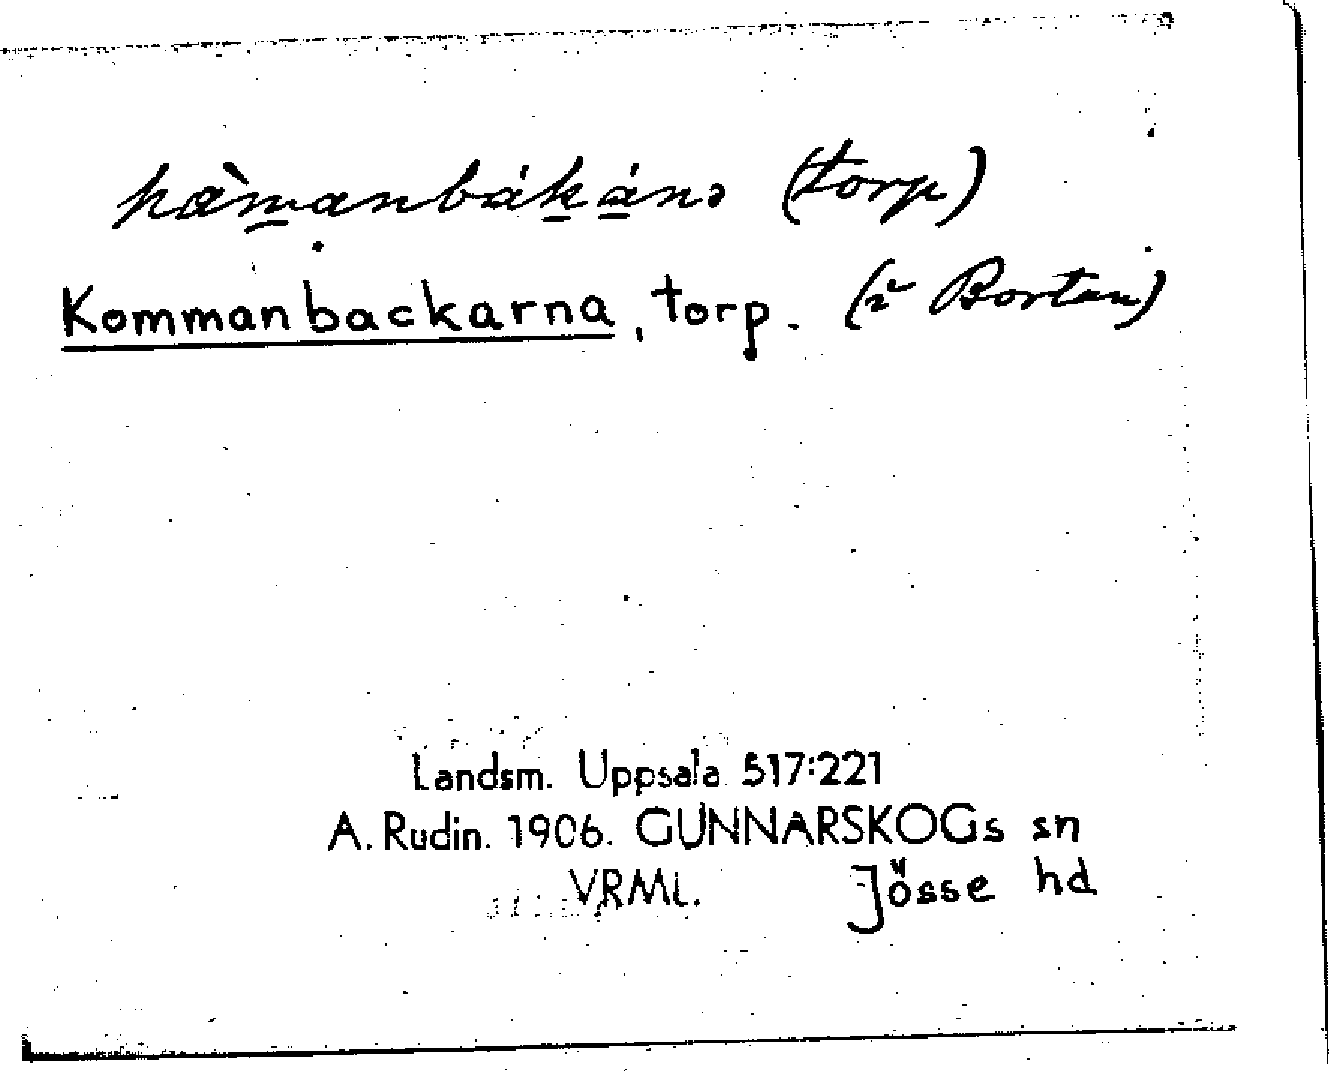 kæ̀m̲anbák̲á̲nə (torp)
Kommanbackarna, torp. (i Bortan)
Landsm. Uppsala 517:221
A. Rudin. 1906. GUNNARSKOGs sn
VRML. Jösse hd